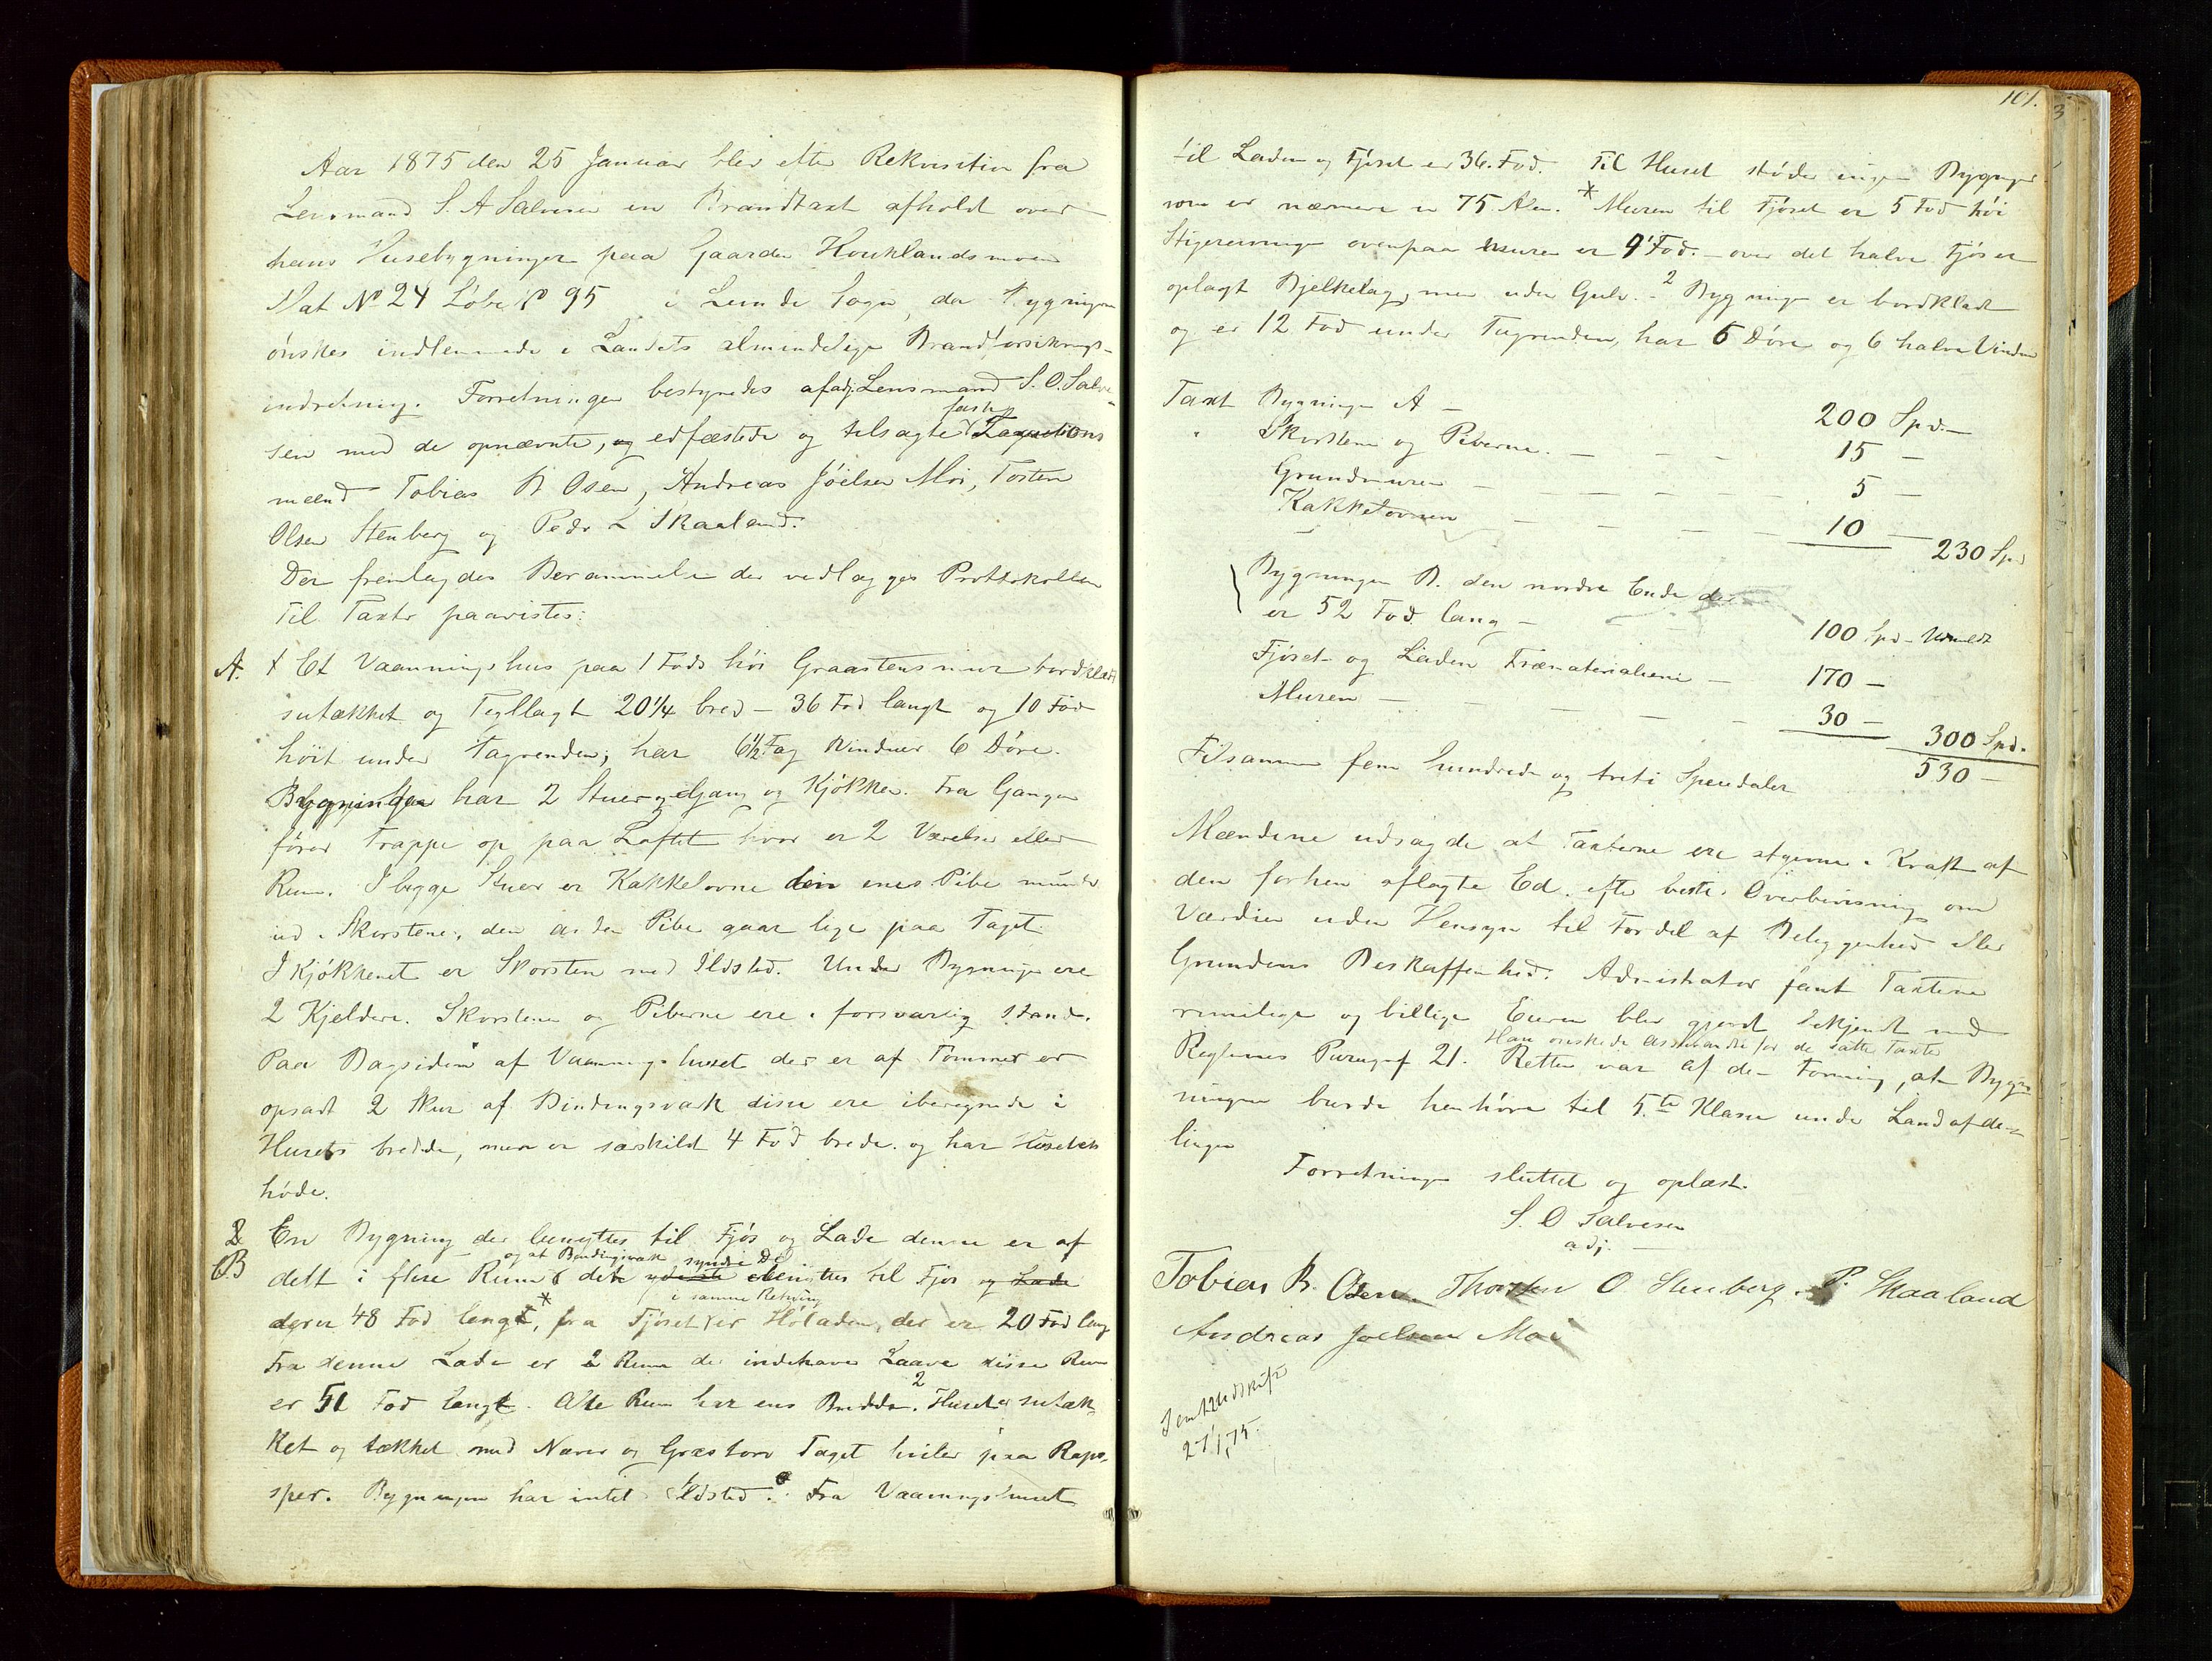 Aar 1875 den 25 Januar blev efter Rekvisition fra
Lensmand S. A Salvesen en Brandtaxt afholdt over
hans Husebygninger paa Gaarden Houklandsmoen
Mat No 24 Løbe No 95 i Lunde Sogn, da Bygningen
ønskes indlemmede i Landets almindelige Brandforsikrings-
indretning. Forretningen bestyredes af adj. Lensmand S. O. Salve-
sen med de opnævnte, og edfæstede og tilsagte faste Taxations
mænd Tobias B Osen, Andreas Jöelsen Moi, Tosten
Olsen Stenberg og Peder L Skaaland.
Der fremlagdes Berammelse der vedlægges Protokollen
Til Taxt paavistes:
A. 1 Et Vaaningshus paa 1 Fods høi Graastensmur bordklædt
sutækket og Tegllagt 20 1/4 bred - 36 Fod langt og 10 Fod
høit under Tagrenden; har 6 1/2 Fag Vinduer 6 Døre.
Bygningen har 2 Stuer og Gang og Kjøkken. Fra Gangen
fører Trappe op paa Loftet hvor er 2 Værelser eller
Rum. I begge Stuer er Kakkelovne den enes Pibe munder
ud i Skorstene, den anden Pibe gaar lige paa Taget.
I Kjøkkenet er Skorsten med Ildsted. Under Bygningen ere
2 Kjeldere. Skorstenen og Piberne ere i forsvarlig Stand.
Paa Bagsiden af Vaaningshuset der er af Tømmer er
opsadt 2 Skur af Bindingsværk disse ere iberegnede i
Husets bredde, men er særskildt 4 Fod brede. og har Husets
høde.
2 En Bygning der benyttes til Fjøs og Lade denne er af
og af Bindingsværk syndre Del
B delt i flere Rum det yderste benyttes til Fjøs og Lade
i samme Retning
der er 48 Fod langt,* fra Fjøset er Høladen, der er 20 Fod lang
Fra denne Lade er 2 Rum der indehaver Laave disse Rum
er 51 Fod langt. Alle Rum har ens Bredde. 2 Huset er sutæk-
ket og tækket med Næver og Græstorv Taget hviler paa Raps-
sper. Bygningen har intet Ildsted. Fra Vaaningshuset
101.
til Laden og Fjøset er 36. Fod. Til Huset støder ingen Bygninger
som er nærmere en 75 Alen. * Muren til Fjøset er 5 Fod høi
ovenpaa Muren er 9 Fod. - over det halve Fjøs er
oplagt Bjelkelag, men uden Gulv. - 2 Bygningen er bordklædt
og er 12 Fod under Tagrenden, har 6 Døre og 6 halve Vinduer
Taxt Bygningen A - 200 Spd. -
" Skorstene og Piberne. - - - 15 -
Grundmuren - - - - - 5 -
Kakkelovnen - - - - - 10 - 230 Spd
Bygningen B. den nordre Ende der
er 52 Fod lang - 100 Spd -
Fjøset og Laden Træmaterialerne - 170 -
Muren - - - - - 30 - 300 Spd.
Tilsammen fem hundrede og treti Speciedaler 530 -
Mændene udsagde at Taxterne ere afgivne i Kraft af
den forhen aflagte Ed. efter beste Overbevisning om
Værdien uden Hensyn til Fordel af Beliggenhed eller
Grundens Beskaffenhed. Administrator fant Taxterne
rimelige og billige Eieren blev gjort bekjendt med
Han ønskede Assurandse for de satte Taxter
Reglernes Paragraf 21. Retten var af den Formening, at Byg-
ningen burde henhøre til 5.te Klasse under Landafde-
lingen
Forretningen sluttet og oplæst.
S. O Salvesen
adj.
Tobias B. Osen. Thorsten O. Stenberg. P. Skaaland
Andreas Joelsen Moi
Sent Udskrift
27/1, 75.